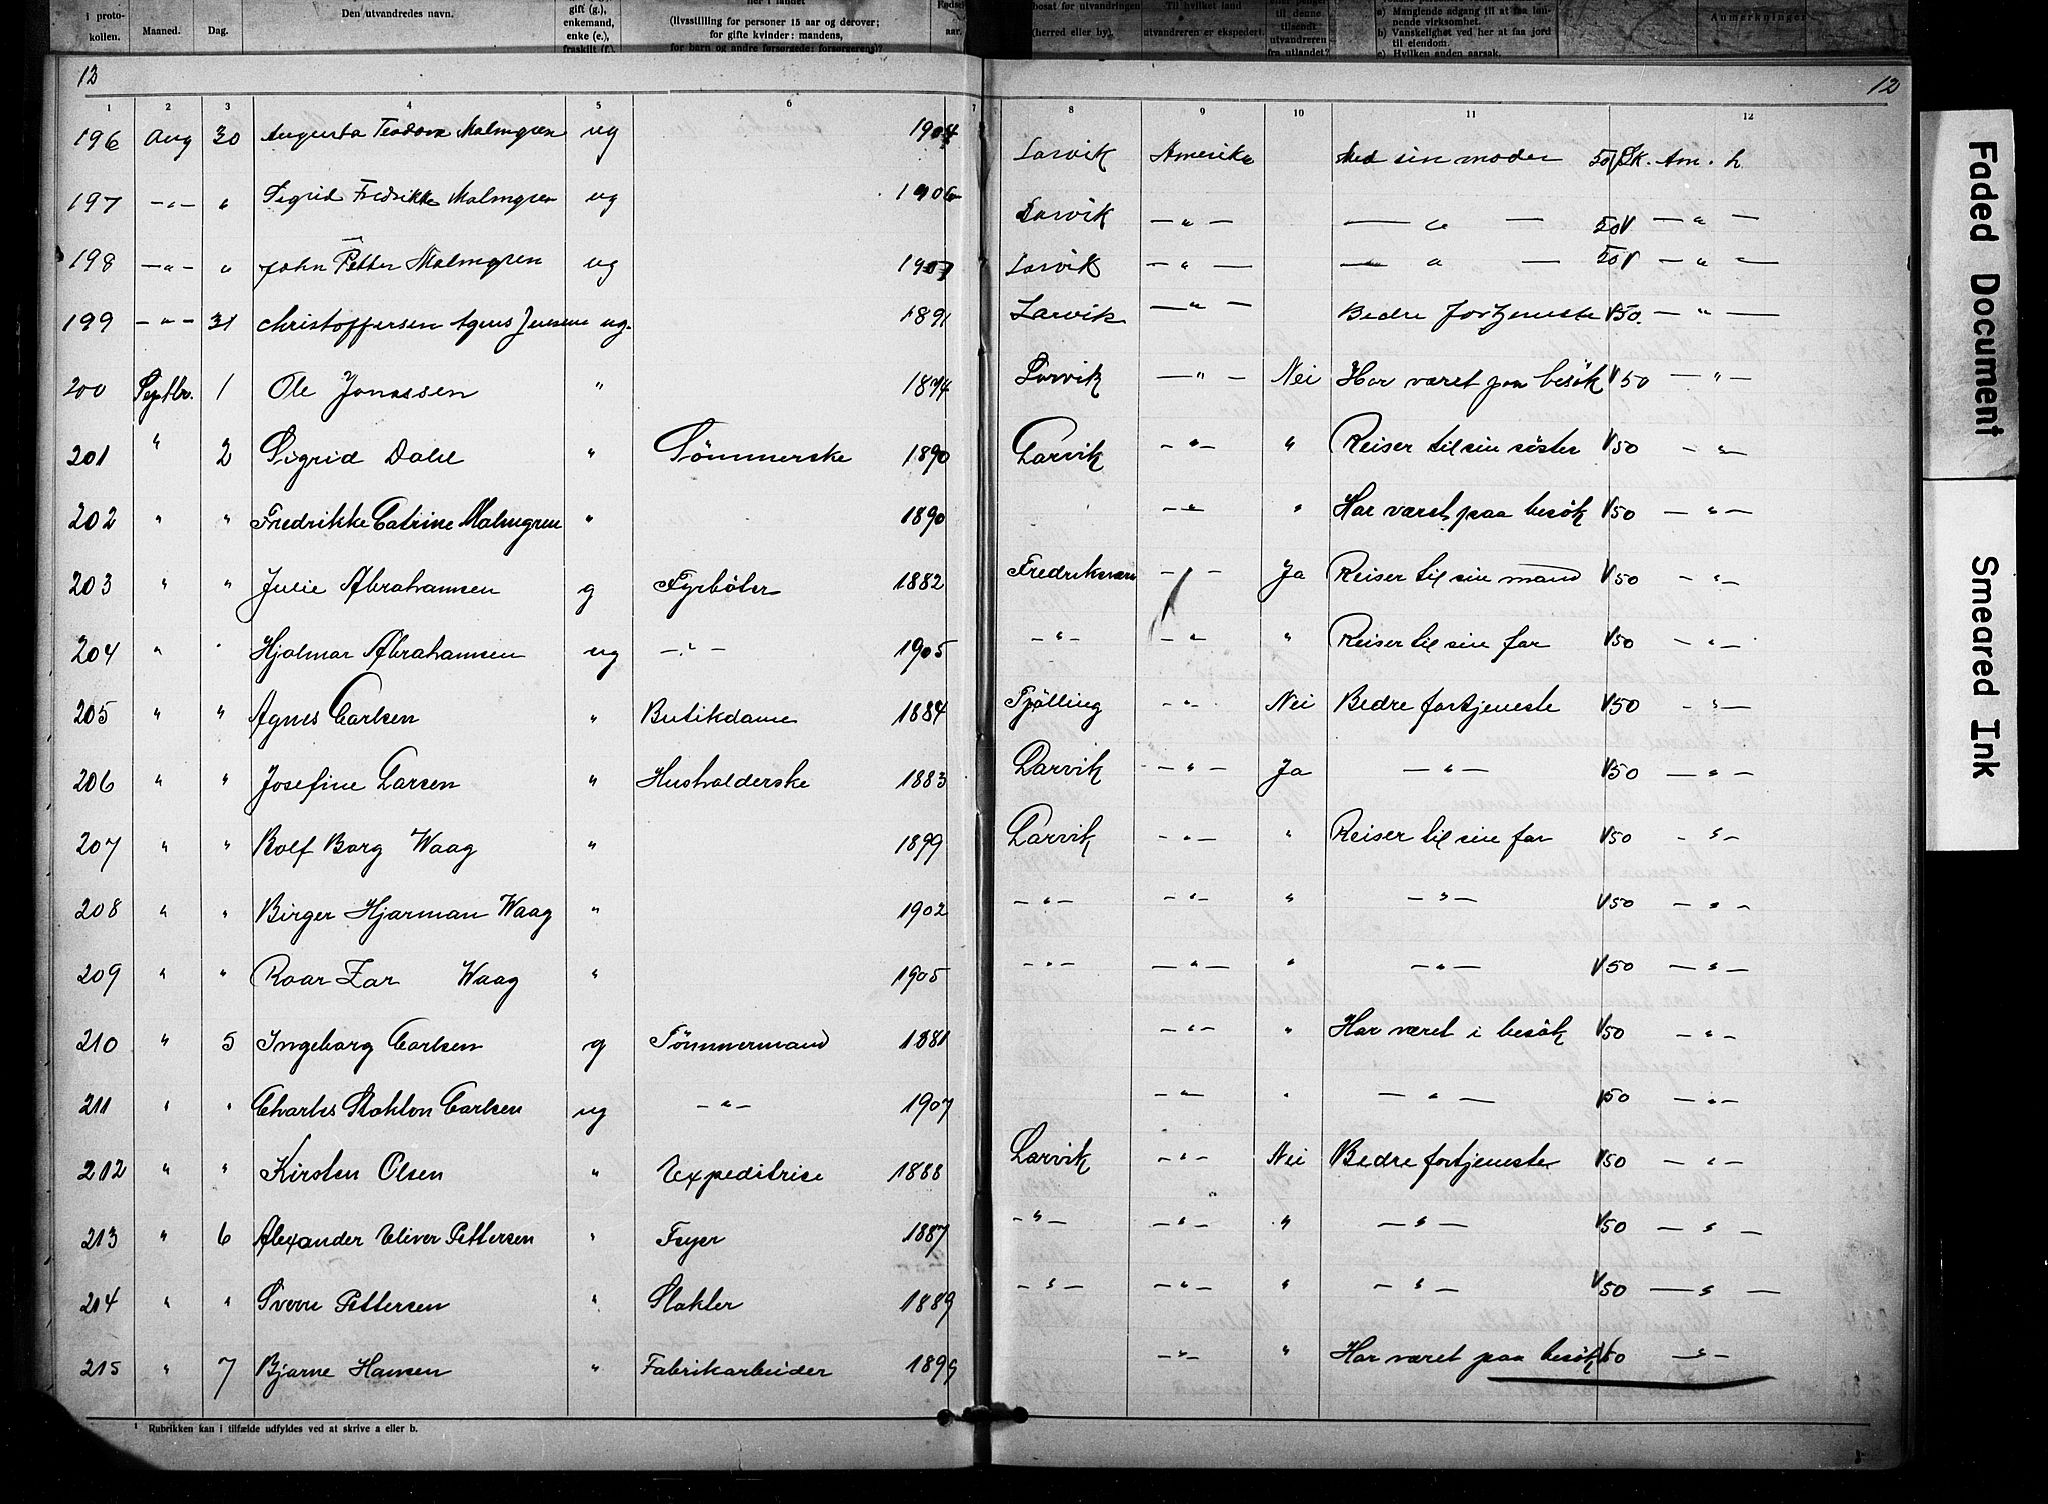 i proto- kollen. Maaned. Dag. Den utvandredes navn. gift (g.), enkemand, enke (e.), fraskilt (f.) her i landet (livsstilling for personer 15 aar og derover; for gifte kvinder: mandens, for barn og andre forsørgede: forsørgerens)? aar. bosat før utvandringen (herred eller by). Til hvilket land utvandreren er ekspedert. til denne tilsendt utvandreren fra utlandet? a) Manglende adgang til at faa løn- nende virksomhet. b) Vanskelighet ved her at faa jord til eiendom. c) Hvilken anden aarsak. Anmerkninger
12 12
1 2 3 4 5 6 7 8 9 10 11 12
196 Aug 30 Augusta Teodora Malmgren ug 1904 Larvik Amerika Med sin moder 50 Sk. Am. L
197 -"- " Sigrid Fredrikke Malmgren ug 1906 Larvik -"- -"- 50 -"-
198 -"- " John Petter Malmgren ug 1907 Larvik -"- -"- 50 -"-
199 -"- 31 Christoffersen Agnes Jensine ug. 1891 Larvik -"- Bedre Fortjeneste 50. -"-
200 Septbr. 1 Ole Jonassen " 1874 Larvik -"- Nei Har været paa besök 50 -"-
201 " 2 Sigrid Dahl " Sömmerske 1890 Larvik -"- " Reiser til sin söster 50 -"-
202 " " Fredrikke Catrine Malmgren " 1890 -"- " Har været paa besök 50 -"-
203 " " Julie Abrahamsen g Fyrböter 1882 Fredriksværn -"- Ja Reiser til sin mand 50 -"-
204 " " Hjalmar Abrahamsen ug -"- 1905 -"- -"- " Reiser til sin far 50 -"-
205 " " Agnes Carlsen " Butikdame 1884 Tjölling -"- Nei Bedre fortjeneste 50 -"-
206 " " Josefine Larsen " Husholderske 1883 Larvik -"- Ja -"- 50 -"-
207 " " Rolf Borg Waag " 1899 Larvik -"- " Reiser til sin far 50 -"-
208 " " Birger Hjarman Waag " 1902 -"- -"- " -"- 50 -"-
209 " " Roar Zar Waag " 1905 -"- -"- " -"- 50 -"-
210 " 5 Ingeborg Carlsen g Tömmermand 1881 -"- " Har været i besök 50 -"-
211 " " Charles Stoklon Carlsen ug -"- 1907 -"- " -"- 50 -"-
212 " " Kirsten Olsen " Expeditrise 1888 Larvik -"- Nei Bedre fortjeneste 50 -"-
213 " 6 Alexander Oliver Pettersen " 1887 -"- -"- " -"- 50 -"-
214 " " Svere Pettersen " Slakter 1889 -"- -"- " -"- 50 -"-
215 " 7 Bjarne Hansen " Fabrikarbeider 1899 -"- " Har været paa besök 50 -"-
1 Rubrikken kan i tilfælde udfyldes ved at skrive a eller b.
Faded Document
Smeared Ink